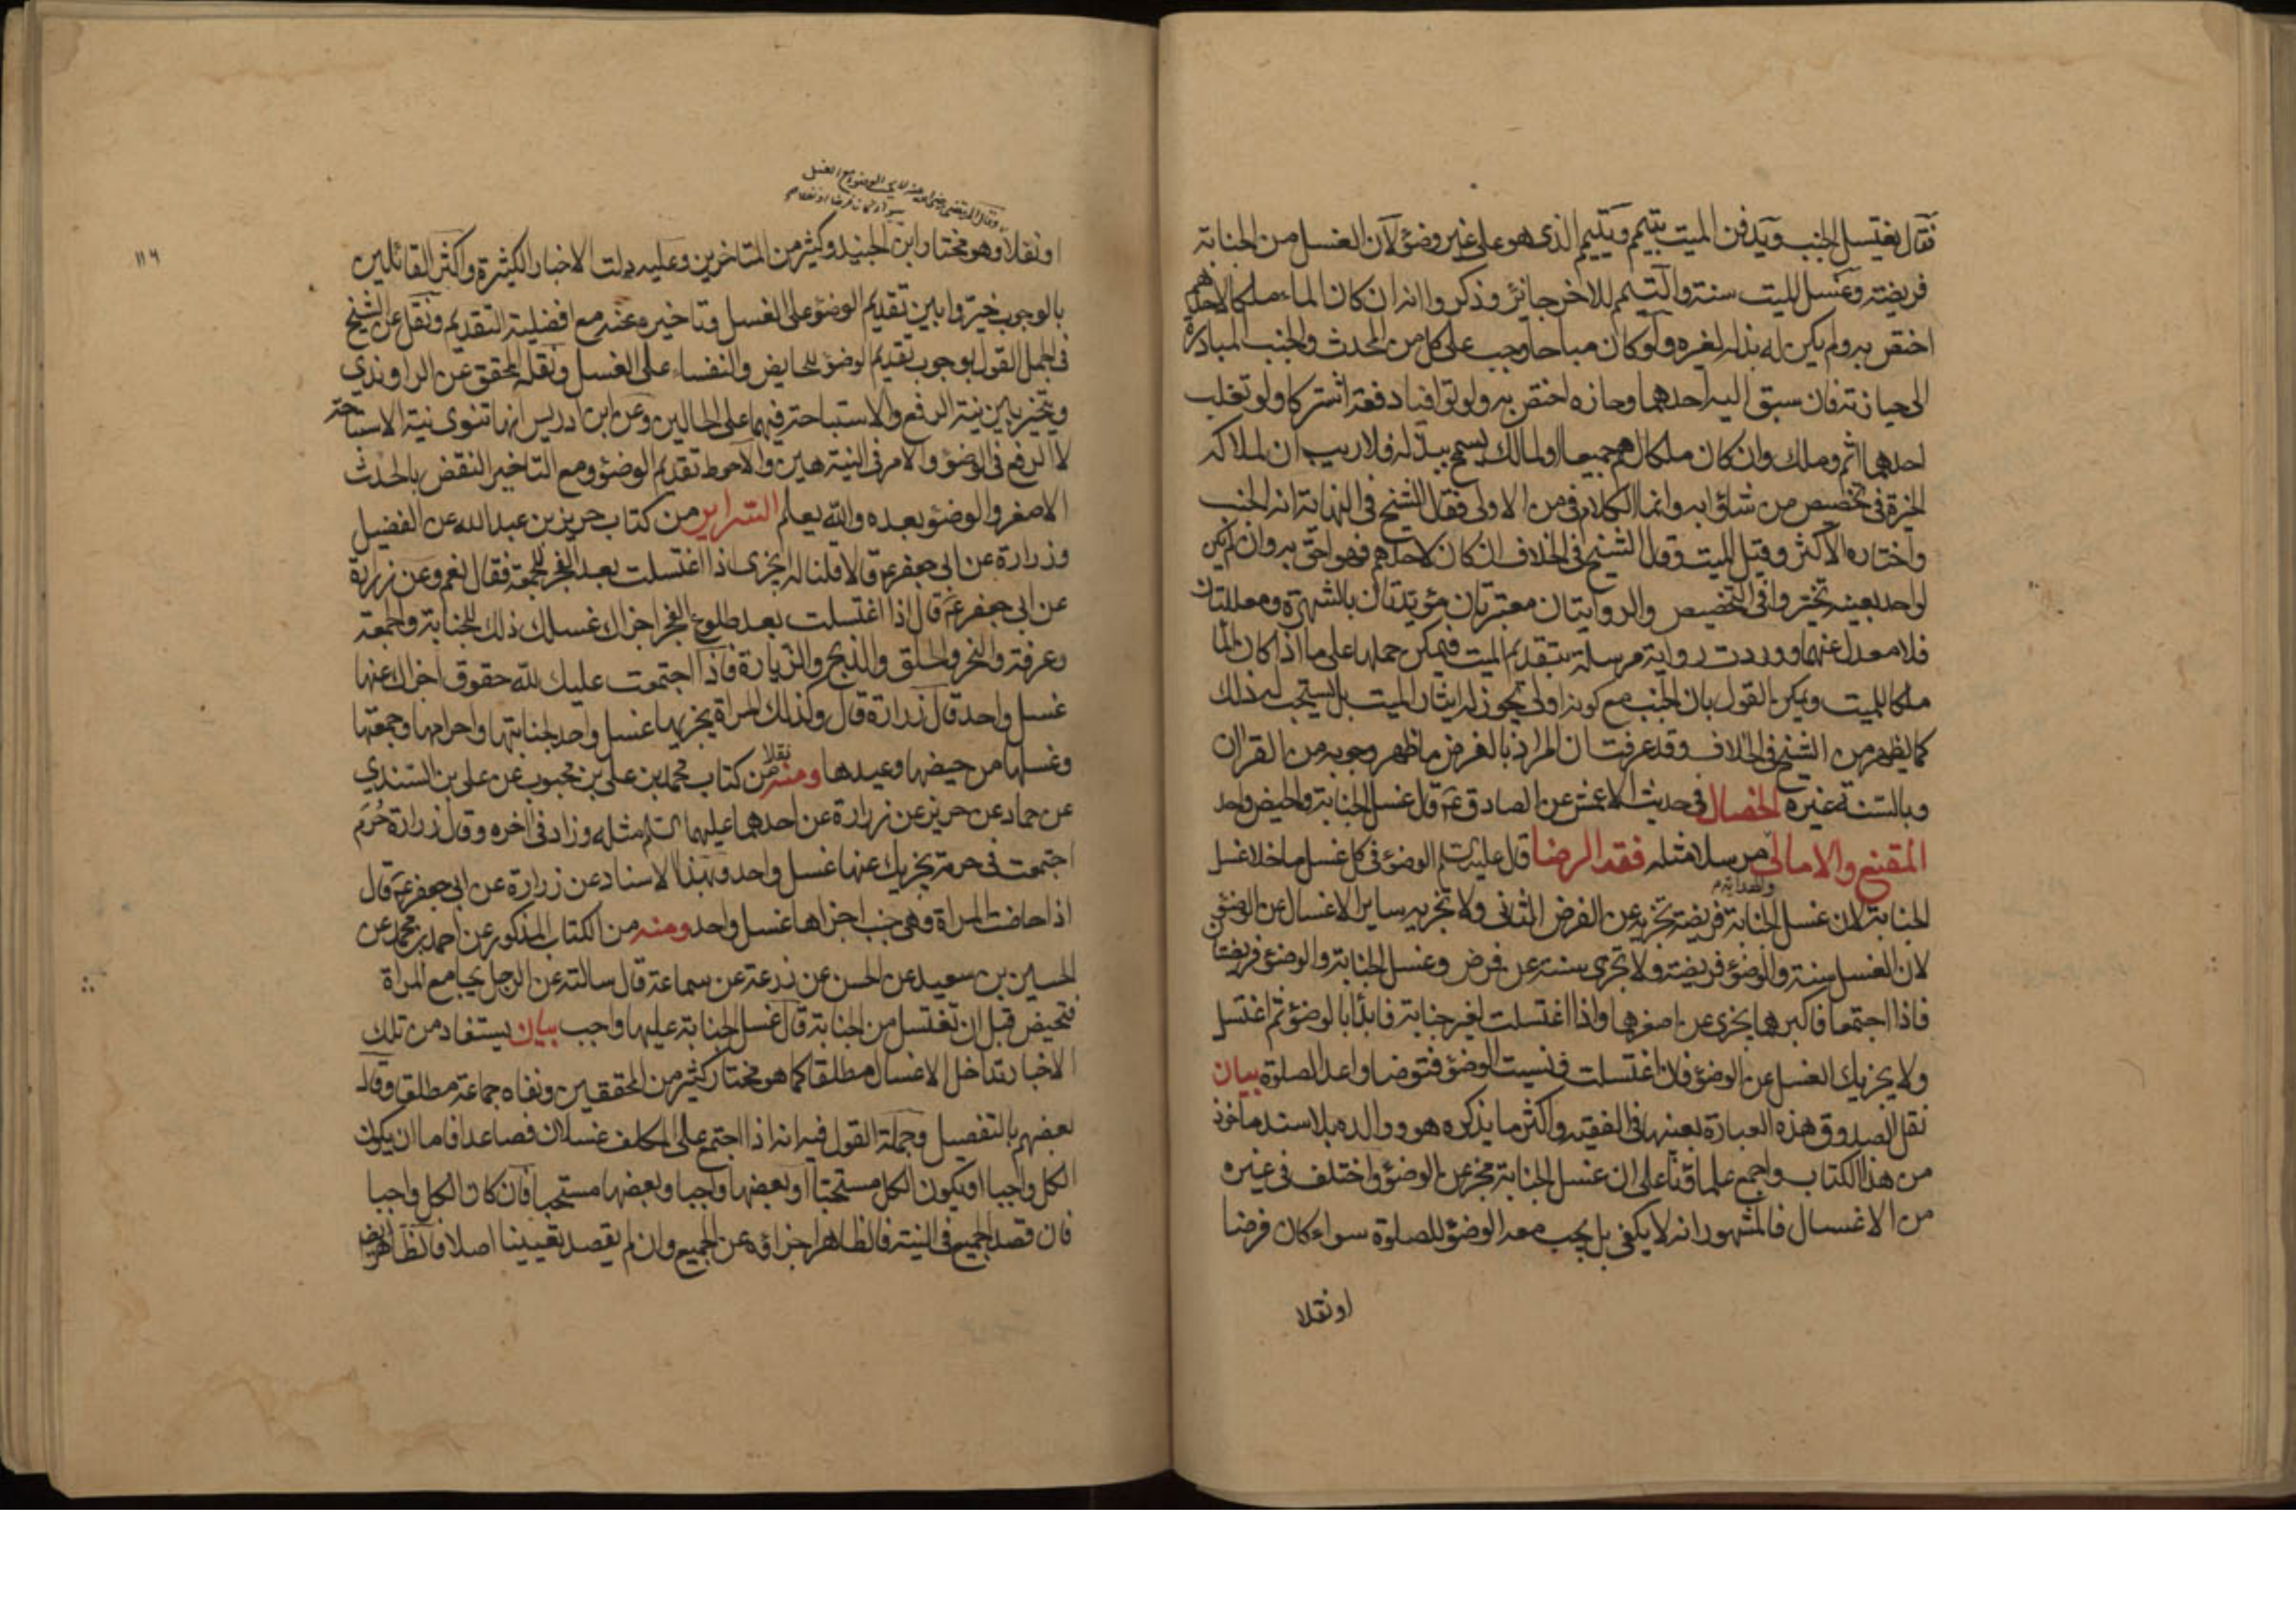 فقال يغتسل الجنب ويدفن الميت بتيمم ويتيمم الذى هو على غير وضوء لان الغسل من الجنابة
فريضة وغسل الميت سنة والتيمم للاخر جائز وذكروا انه ان كان الماء ملكا لاحدهم
اختص به ولم يكن له بذله لغيره ولو كان مباحا وجب على كل من المحدث والجنب المبادرة
الى حيازته فان سبق اليه احدهما وحازه اختص به ولو توافيا دفعة اشتركا ولو تغلب
احدهما اثم وملك وان كان ملكا لهم جميعا او لمالك يسمح ببذله فلا ريب ان لملاكه
الخيرة فى تخصيص من شاؤا به وانما الكلام فى من الاولى فقال الشيخ فى النهاية انه الجنب
واختاره الاكثر وقيل الميت وقال الشيخ فى الخلاف ان كان لاحدهم فهو احق به وان لم يكن
لواحد بعينه تخيروا فى التخصيص والروايتان معتبرتان مؤيدتان بالشهرة ومعللتان
فلا معدل عنهما ووردت رواية مرسلة بتقديم الميت فيمكن حملها على ما اذا كان الما
ملكا للميت ويمكن القول بان الجنب مع كونه اولى يجوز له ايثار الميت بل يستحب له ذلك
كما يظهر من الشيخ فى الخلاف وقد عرفت ان المراد بالفرض ما ظهر وجوبه من القران
وبالسنة غيره الخصال فى حديث الاعمش عن الصادق ع قال غسل الجنابة والحيض واحد
المقنع والامالى مرسلا مثله فقه الرضا قال عليه السلم الوضوء فى كل غسل ما خلا غسل
والهداية
الجنابة لان غسل الجنابة فريضة تجزيه عن الفرض الثانى ولا تجزيه ساير الاغسال عن الوضوء
لان الغسل سنة والوضوء فريضة ولا تجزى سنة عن فرض وغسل الجنابة والوضوء فريضتا
فاذا اجتمعا فاكبرهما يجزى عن اصغرهما واذا اغتسلت لغير جنابة فابدأ بالوضوء ثم اغتسل
ولا يجزيك الغسل عن الوضوء فان اغتسلت ونسيت الوضوء فتوضا واعد الصلوة بيان
نقل الصدوق هذه العبارة بعينها فى الفقيه واكثر ما يذكره هو ووالده بلا سند ماخوذ
من هذا الكتاب واجمع علماؤنا على ان غسل الجنابة مجز عن الوضوء واختلف فى غيره
من الاغسال فالمشهور انه لا يكفى بل يجب معه الوضوء للصلوة سواء كان فرضا
او نفلا
وقال المرتضى رضى الله عنه لا يجب الوضوء مع الغسل
سواء كان فرضا او نفلا
١١٩
او نفلا وهو مختار ابن الجنيد وكثير من المتاخرين وعليه دلت الاخبار الكثيرة واكثر القائلين
بالوجوب خيروا بين تقديم الوضوء على الغسل وتاخيره عنه مع افضلية التقديم ونقل عن الشيخ
فى الجمل القول بوجوب تقديم الوضوء للحايض والنفساء على الغسل ونقله المحقق عن الراوندي
ويتخير بين نية الرفع والاستباحة فيهما على الحالين وعن ابن ادريس انها تنوى نية الاستباحة
لا الرفع فى الوضوء والامر فى النية هين والاحوط تقديم الوضوء ومع التاخير النقض بالحدث
الاصغر والوضوء بعده والله يعلم السراير من كتاب حريز بن عبد الله عن الفضيل
وزرارة عن ابى جعفر ع قالا قلنا له ايجزى اذا اغتسلت بعد الفجر للجمعة فقال نعم وعن زرارة
عن ابى جعفر ع قال اذا اغتسلت بعد طلوع الفجر اجزاك غسلك ذلك للجنابة والجمعة
وعرفة والنحر والحلق والذبح والزيارة فاذا اجتمعت عليك لله حقوق اجزاك عنها
غسل واحد قال زرارة قال وكذلك المراة يجزيها غسل واحد لجنابتها واحرامها وجمعتها
وغسلها من حيضها وعيدها ومنه نقلا من كتاب محمد بن على بن محبوب عن على بن السندي
عن حماد عن حريز عن زرارة عن احدهما عليهما السلم مثله وزاد فى اخره وقال زرارة حُرَم
اجتمعت فى حرمة يجزيك عنها غسل واحد وبهذا الاسناد عن زرارة عن ابى جعفر ع قال
اذا حاضت المراة وهى جنب اجزاها غسل واحد ومنه من الكتاب المذكور عن احمد بن محمد عن
الحسين بن سعيد عن الحسن عن زرعة عن سماعة قال سالته عن الرجل يجامع المراة
فتحيض قبل ان تغتسل من الجنابة قال غسل الجنابة عليها واجب بيان يستفاد من تلك
الاخبار تداخل الاغسال مطلقا كما هو مختار كثير من المحققين ونفاه جماعة مطلقا وقال
بعضهم بالتفصيل وجملة القول فيه انه اذا اجتمع على المكلف غسلان فصاعدا فاما ان يكون
الكل واجبا او يكون الكل مستحبا او بعضها واجبا وبعضها مستحبا فان كان الكل واجبا
فان قصد الجميع فى النية فالظاهر اجزاؤه عن الجميع وان لم يقصد تعيينا اصلا فالظاهر ايض